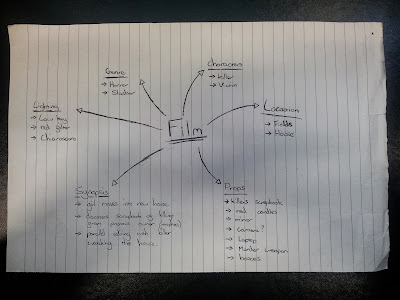 Film
Genre
→ Horror
→ Slasher
Characters
→ killer
→ Victim
Location
→ Fields
→ House
Props
→ killers scrapbook
→ red candles
→ mirror
→ camera?
→ Laptop
→ Murder weapon
→ boxes
Synopsis
→ girl moves into new house
→ discovers scrapbook of killings
from previous owner
→ parallel editing with killer
watching the house.
Lighting
→ Low key
→ red
→